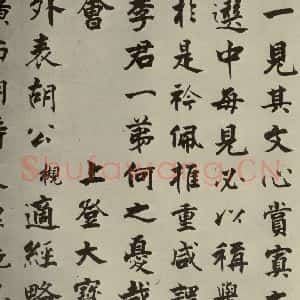 一見其文心賞寘
選中每見必以稱
於是衿佩推重咸
李君一第何之憂哉
會 上登大寶
外表胡公槻適經略
Shufawang.CN